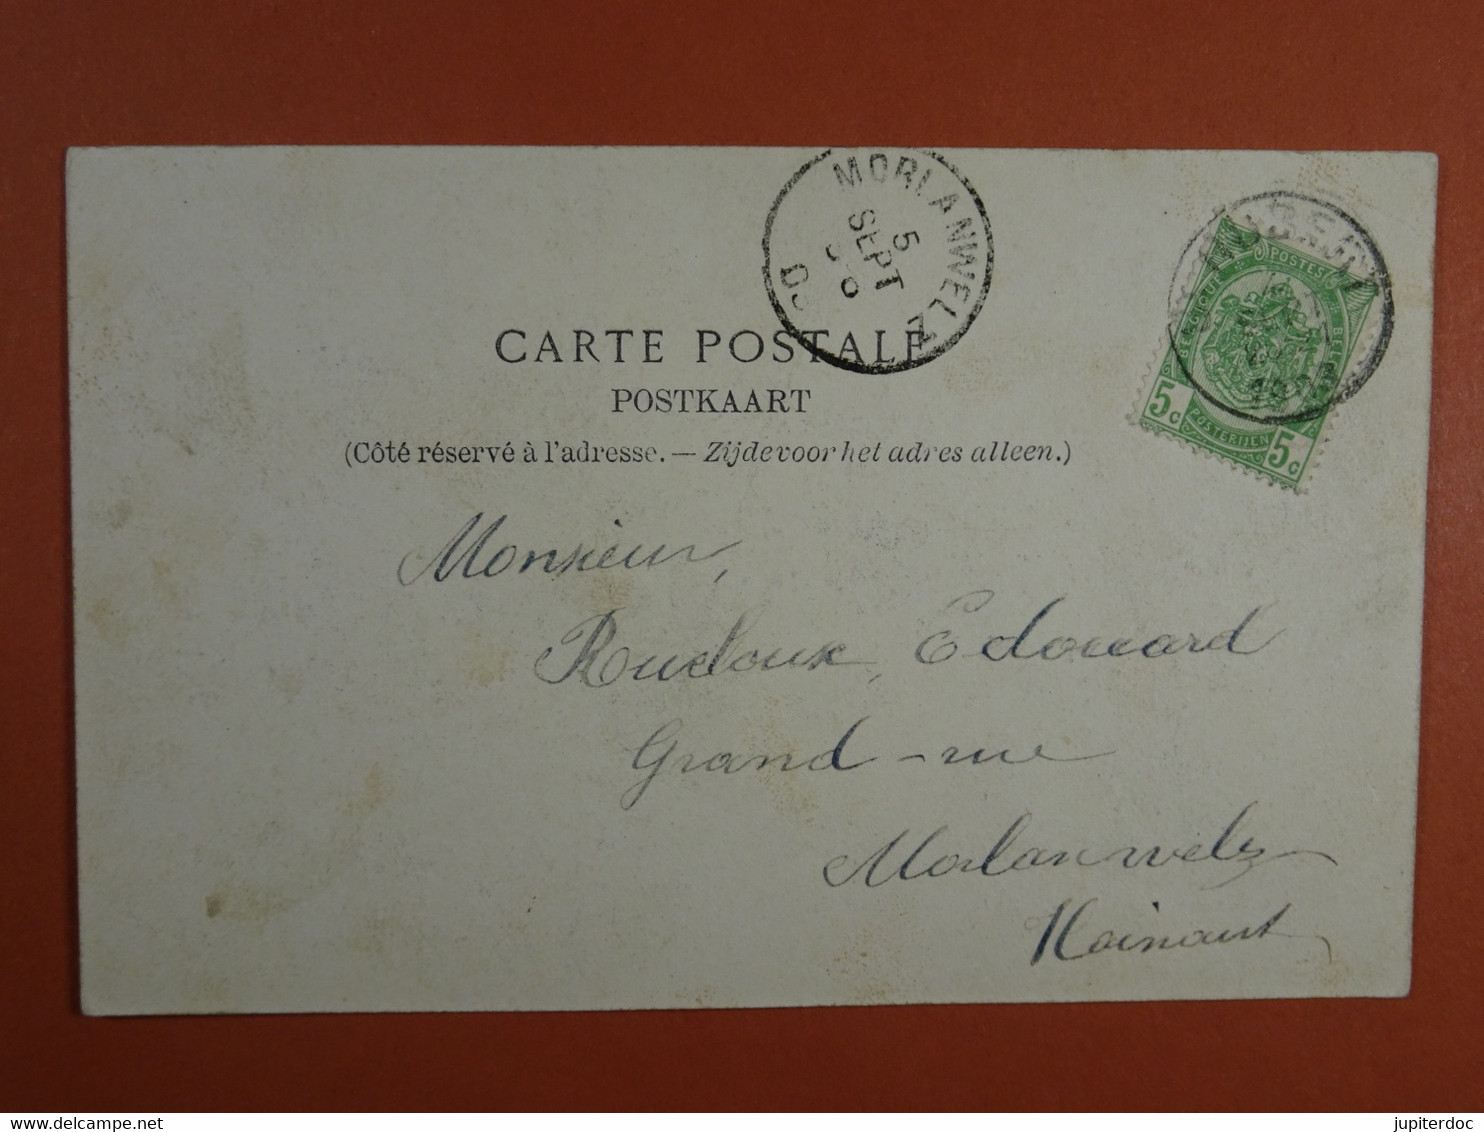 MORLANWELZ
5
SEPT
CARTE POSTALE
POSTKAART
(Côté réservé à l'adresse. — Zijde voor het adres alleen.)
POSTES
BELGIQUE
BELGIE
POSTERIJEN
5c 5c
Monsieur,
Roudoux, Edouard
Grand-rue
Morlanwelz
Hainaut
jupiterdoc